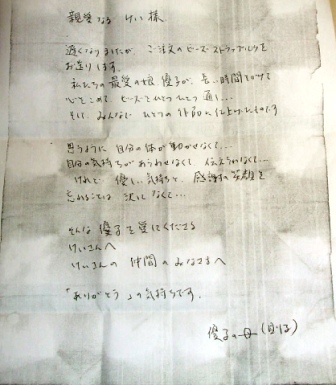 親愛なる けい様
遅くなりましたが、ご注文のビーズ・ストラップ
お送りします。
私たちの最愛の娘 優子が、長い時間をかけて
心をこめて ビーズをひとつひとつ通し...
そして みんなで ひとつの作品に仕上げたものです
思うように 自分の体が動かせなくて...
自分の気持ちがあらわせなくて 伝えられなくて...
けれど 優しい気持ちと 感謝の笑顔を
忘れることは 決してなくて...
そんな 優子を愛してくださる
けいさんへ
けいさんの 仲間のみなさまへ
「ありがとう」の気持ちです。
優子の母